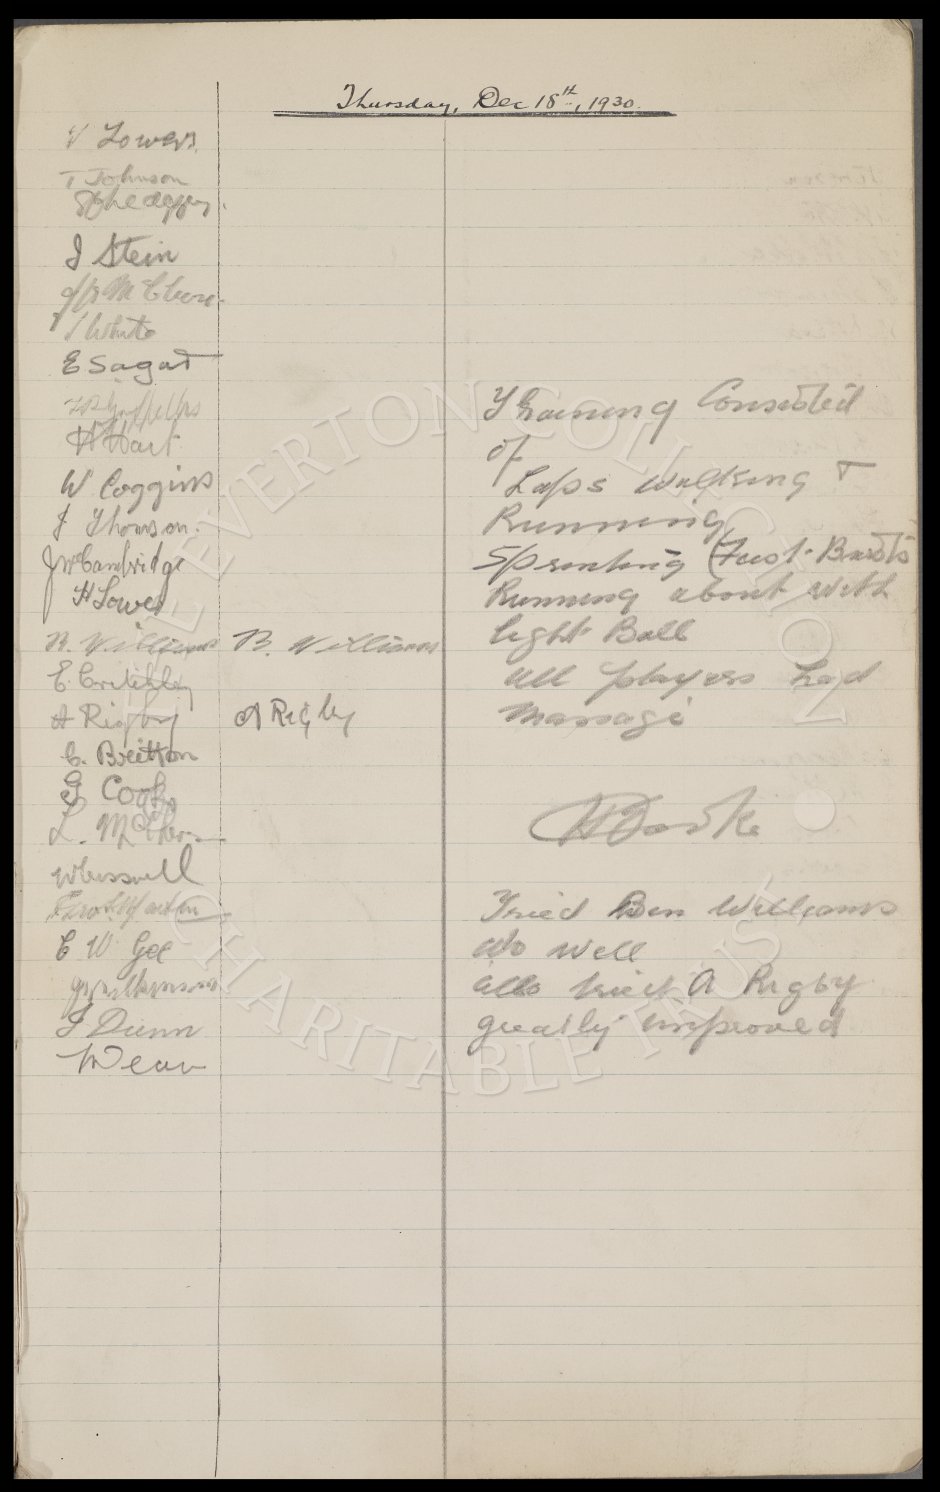 Thursday, Dec 18th, 1930.
Lowers.
T Johnson
J Stein
McClure
White
E Sagar
H Hart
W Coggins
J Thomson.
J W Cambridge
H Lowe
B. Williams B. Williams
E. Critchley
A Rigby A Rigby
C. Britton
G Cook
L. McPher
W Cresswell
C W Gee
J Dunn
W Dean
Training Consisted
of
Laps Walking &
Running,
Sprinting (Fast-Bursts
Running about with
light Ball
all players had
massage
H Cooke
Tried Ben Williams
do well
also tried A Rigby
greatly improved
THE EVERTON COLLECTION
CHARITABLE TRUST